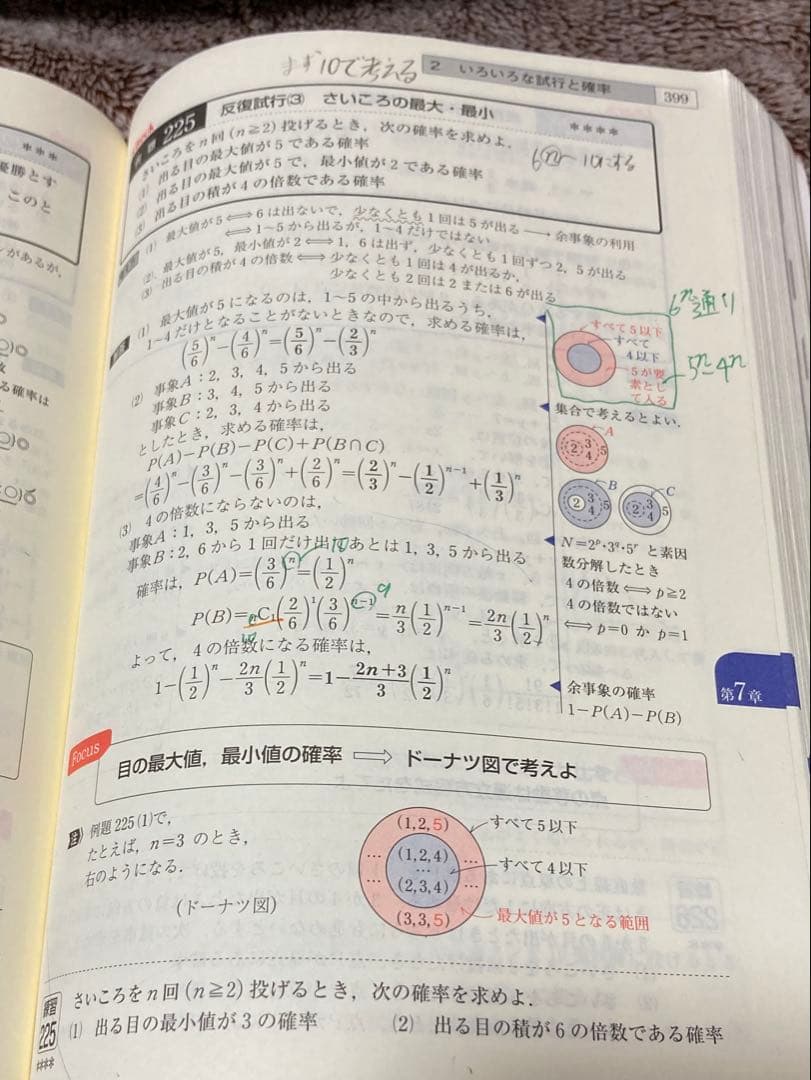 まず10で考える
2 いろいろな試行と確率
399
225 反復試行③ さいころの最大・最小
****
さいころをn回(n≧2)投げるとき，次の確率を求めよ．
(1) 出る目の最大値が5である確率
(2) 出る目の最大値が5で，最小値が2である確率
(3) 出る目の積が4の倍数である確率
(1) 最大値が5⟺6は出ないで，少なくとも1回は5が出る → 余事象の利用
⟺1~5から出るが，1~4だけではない
(2) 最大値が5，最小値が2⟺1，6は出ず，少なくとも1回ずつ2，5が出る
(3) 出る目の積が4の倍数⟺少なくとも1回は4が出るか，
少なくとも2回は2または6が出る
(1) 最大値が5になるのは，1~5の中から出るうち，
1~4だけとなることがないときなので，求める確率は，
(5/6)^n−(4/6)^n=(5/6)^n−(2/3)^n
6^n通り
すべて5以下
すべて
4以下
5が要
素とし
て入る
5^n−4^n
(2) 事象A：2，3，4，5から出る
事象B：3，4，5から出る
事象C：2，3，4から出る
としたとき，求める確率は，
P(A)−P(B)−P(C)+P(B∩C)
=(4/6)^n−(3/6)^n−(3/6)^n+(2/6)^n=(2/3)^n−(1/2)^{n−1}+(1/3)^n
集合で考えるとよい．
A
2 3 4 5
B
2 3 4 5
C
2 3 4 5
(3) 4の倍数にならないのは，
事象A：1，3，5から出る
事象B：2，6から1回だけ出て，あとは1，3，5から出る
確率は，P(A)=(3/6)^n=(1/2)^n
10
P(B)=nC1(2/6)^1(3/6)^{n−1}=n/3(1/2)^{n−1}=2n/3(1/2)^n
9
10
よって，4の倍数になる確率は，
1−(1/2)^n−2n/3(1/2)^n=1−(2n+3)/3(1/2)^n
N=2^p・3^q・5^rと素因
数分解したとき
4の倍数⟺p≧2
4の倍数ではない
⟺p=0 か p=1
余事象の確率
1−P(A)−P(B)
第7章
Focus
目の最大値，最小値の確率 ⟹ ドーナツ図で考えよ
注 例題225(1)で，
たとえば，n=3 のとき，
右のようになる．
(ドーナツ図)
(1,2,5)
(1,2,4)
… … …
(2,3,4)
… …
(3,3,5)
すべて5以下
すべて4以下
最大値が5となる範囲
練習
225
****
さいころをn回(n≧2)投げるとき，次の確率を求めよ．
(1) 出る目の最小値が3の確率
(2) 出る目の積が6の倍数である確率
***
勝とす
このと
があるが，
る確率は